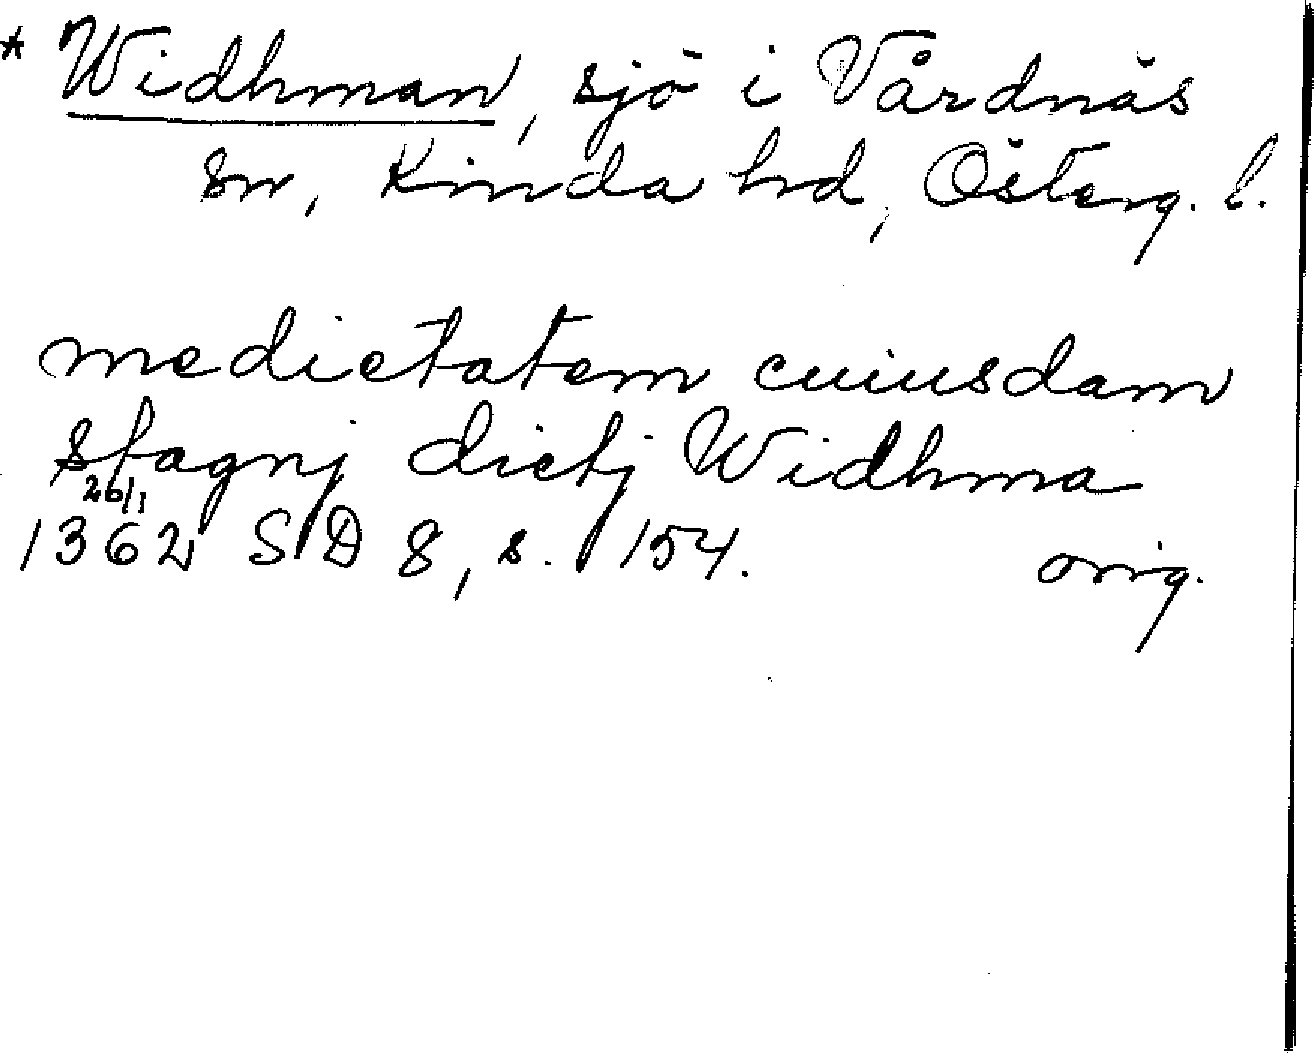 * Widhman, sjö i Vårdnäs
sn, Kinda hd, Österg. l.
medietatem cuiusdam
stagnj dictj Widhma
26/1
1362 SD 8, s. 154. orig.